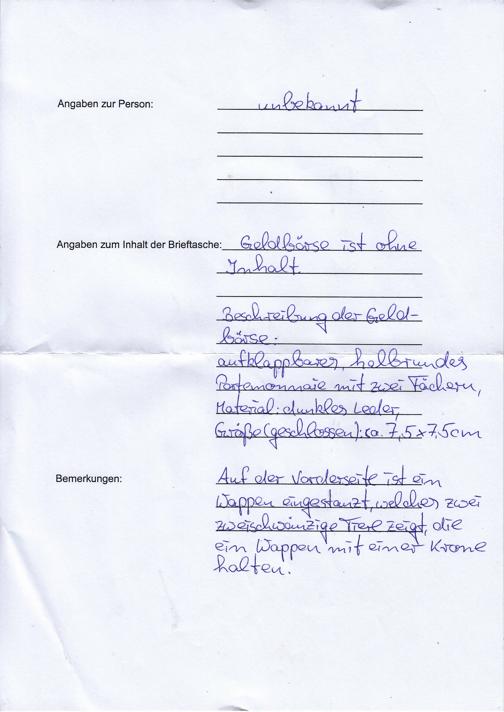 Angaben zur Person: unbekannt
Angaben zum Inhalt der Brieftasche: Geldbörse ist ohne
Inhalt.
Beschreibung der Geld-
börse:
aufklappbares, halbrundes
Portemonnaie mit zwei Fächern,
Material: dunkles Leder,
Größe (geschlossen): ca. 7,5x7,5cm
Bemerkungen: Auf der Vorderseite ist ein
Wappen eingestanzt, welches zwei
zweischwänzige Tiere zeigt, die
ein Wappen mit einer Krone
halten.